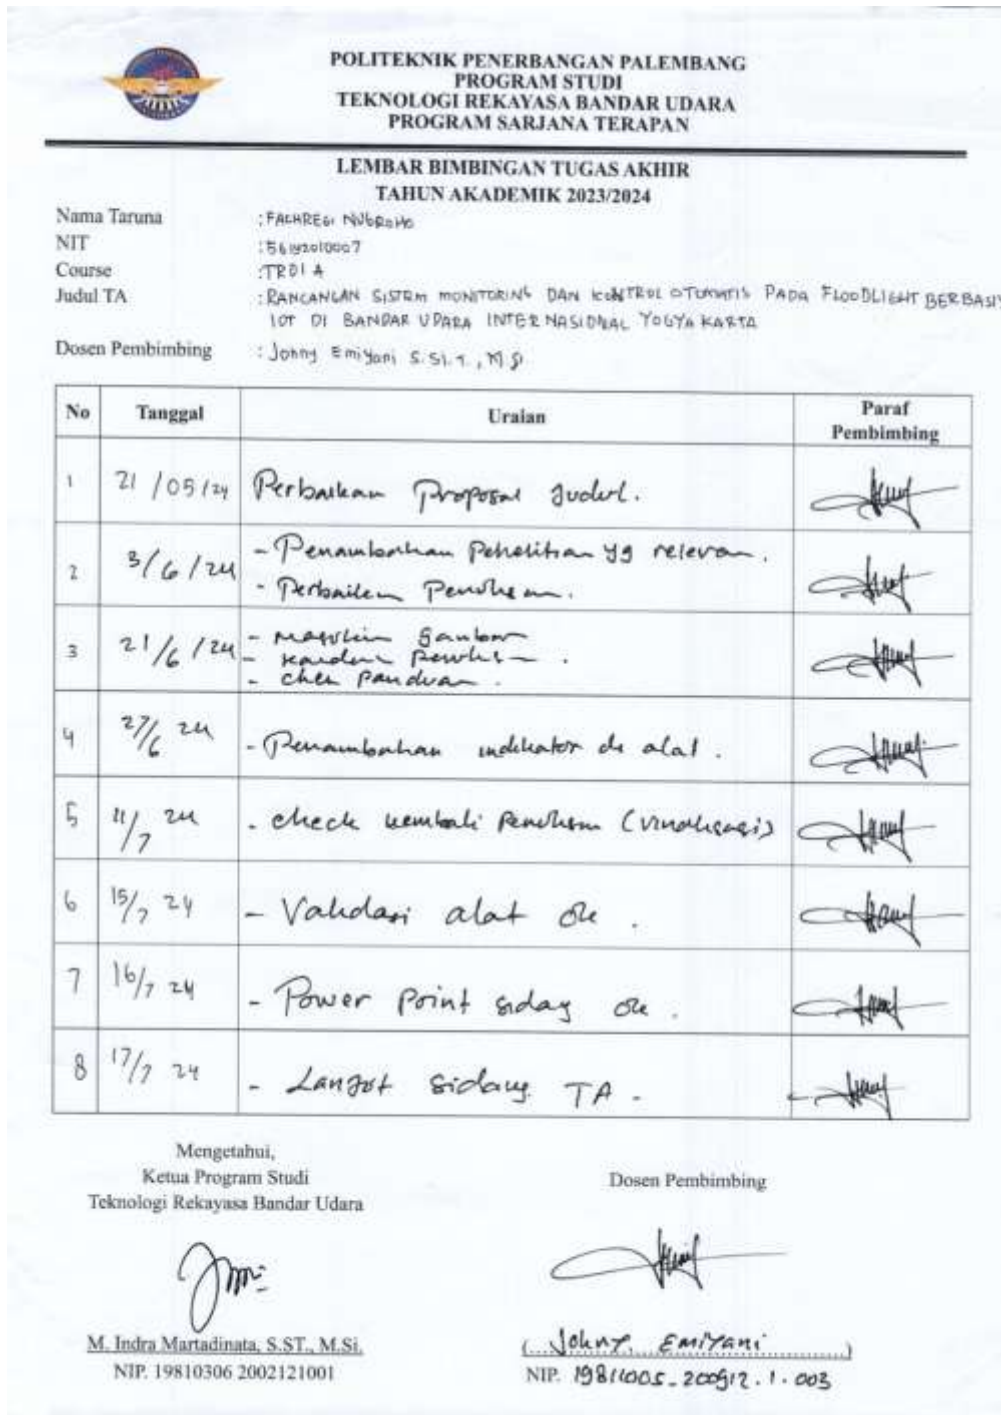 POLITEKNIK PENERBANGAN PALEMBANG
PROGRAM STUDI
TEKNOLOGI REKAYASA BANDAR UDARA
PROGRAM SARJANA TERAPAN
LEMBAR BIMBINGAN TUGAS AKHIR
TAHUN AKADEMIK 2023/2024
Nama Taruna : FACHREGI NUGROHO
NIT : 56192010007
Course : TRBU A
Judul TA : RANCANGAN SISTEM MONITORING DAN KONTROL OTOMATIS PADA FLOODLIGHT BERBASIS
IOT DI BANDAR UDARA INTERNASIONAL YOGYAKARTA
Dosen Pembimbing : Johny Emiyani S.Si.T., M.Si
No Tanggal Uraian Paraf Pembimbing
1 21/05/24 Perbaikan Proposal Judul.
2 3/6/24 - Penambahan Penelitian yg relevan.
- Perbaikan Penulisan.
3 21/6/24 - Masukin gambar
- Penulisan.
- Chek panduan.
4 27/6 24 - Penambahan indikator di alat.
5 11/7 24 - check kembali Penulisan
6 15/7 24 - Validasi alat ok.
7 16/7 24 - Power Point sidang ok.
8 17/7 24 - Lanjut sidang TA.
Mengetahui,
Ketua Program Studi
Teknologi Rekayasa Bandar Udara
M. Indra Martadinata, S.ST., M.Si.
NIP. 19810306 2002121001
Dosen Pembimbing
( Johny Emiyani )
NIP. 19811005_200912.1.003